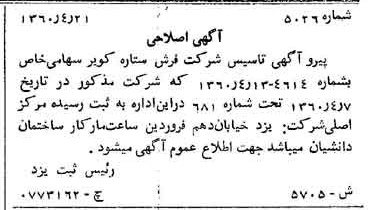 شماره ۵۰۲۶ ۱۳۶۰/۴/۲۱
آگهی اصلاحی
پیرو آگهی تاسیس شرکت فرش ستاره کویر سهامی خاص
بشماره ۴۶۱۴-۱۳۶۰/۴/۱۳ که شرکت مذکور در تاریخ
۱۳۶۰/۴/۷ تحت شماره ۶۸۱ دراین اداره به ثبت رسیده مرکز
اصلی شرکت: یزد خیابان دهم فروردین ساعت مارکار ساختمان
دانشیان میباشد جهت اطلاع عموم آگهی میشود.
رئیس ثبت یزد
ش - ۵۷۰۵ ج - ۰۷۷۳۱۶۲